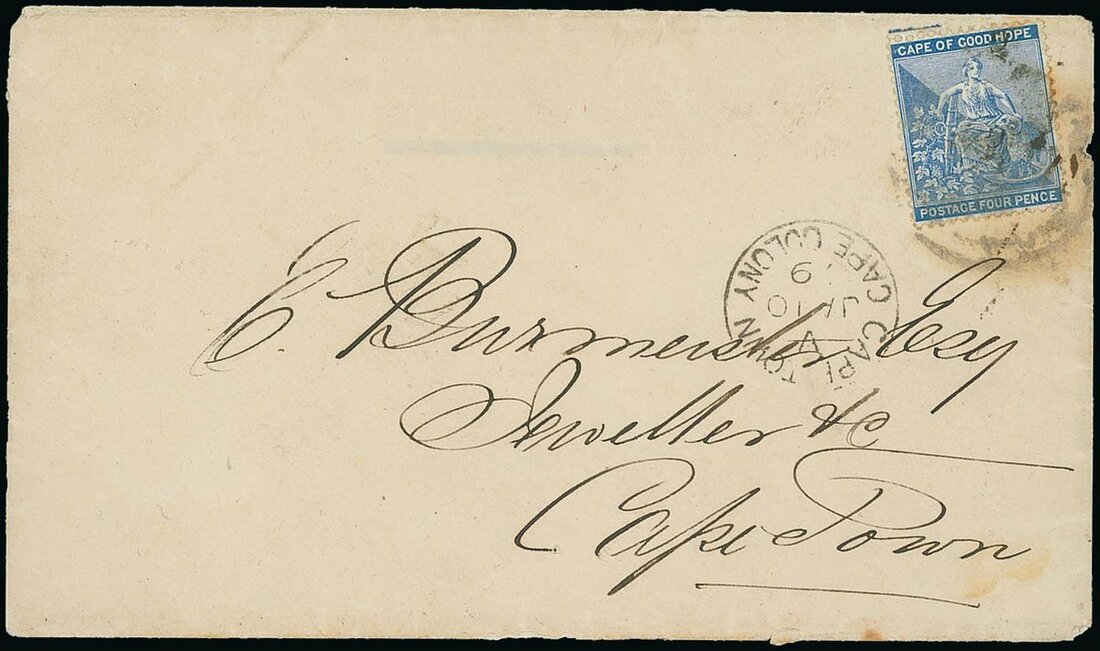 CAPE OF GOOD HOPE
POSTAGE FOUR PENCE
CAPE TOWN
CAPE COLONY
A
JA 10
E. Burmeister Esq
Jeweller &c
Cape Town